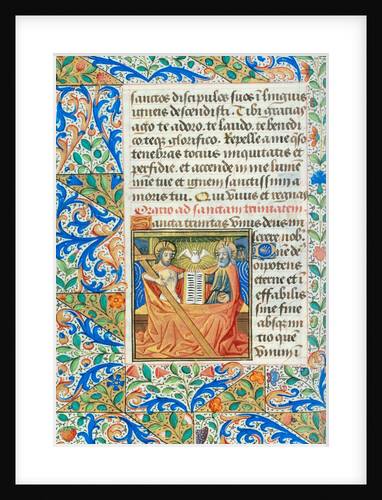 sanctos discipulos suos ī linguis
igneis descendisti. Tibi gratias
ago te adoro. te laudo. te benedi
co teqz glorifico. Repelle a me qso
tenebras tocius iniquitatis et
perfidie. et accende in me lumē
mētue et ignem sanctissimi a
moris tui. Qui viuis et regnas
Oracio ad sanctam trinitatem.
Sancta trinitas vnus deus mi
serere nob.
O
ne de
ipotens
eterne et i
effabilis
sine fine
absqz ini
tio que
vnum ī